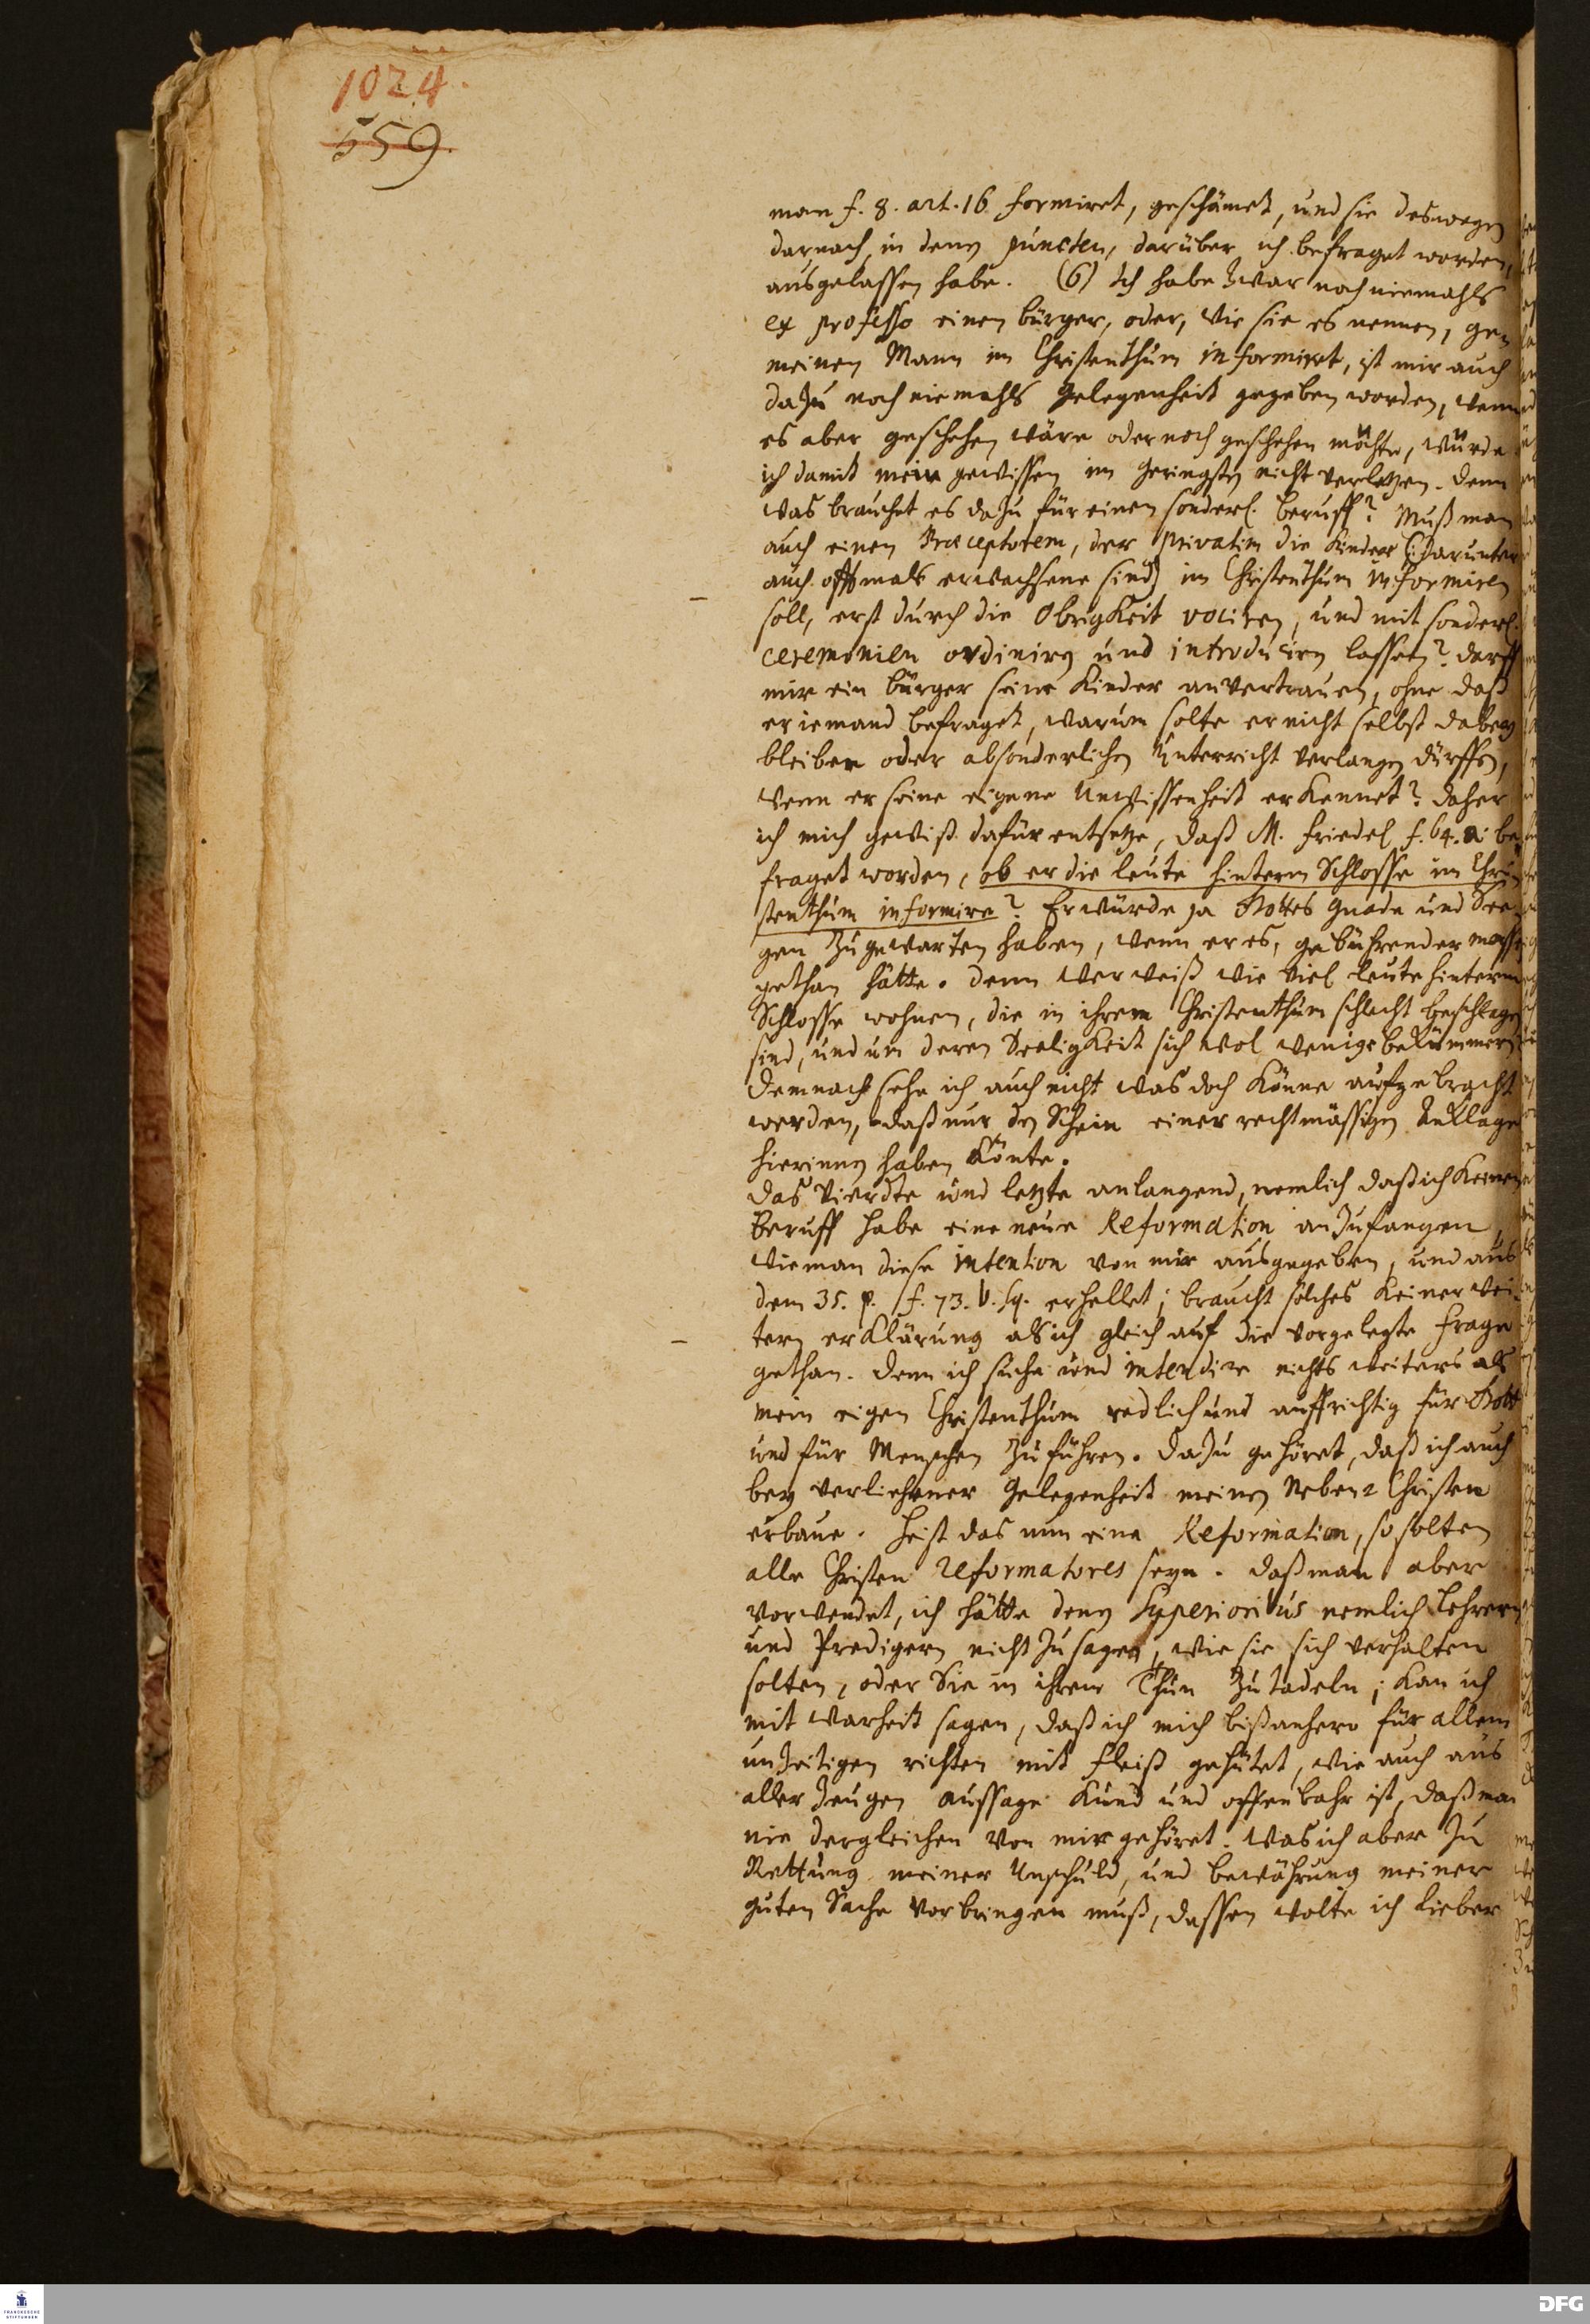 1024.
559.
man f. 8. art. 16 formiret, geschämet, und sie deswegen
darnach in denen puncten, darüber ich befraget worden,
ausgelassen habe. (6) Ich habe zwar noch niemahls
ex professo einen bürger, oder, wie sie es nennen, ge-
meinen Mann im Christenthum informiret, ist mir auch
dazu noch niemahls gelegenheit gegeben worden, wenn
es aber geschehen wäre oder noch geschehen möchte, würde
ich damit mein gewissen im geringsten nicht verletzen. Denn
was brauchet es dazu für einen sonderl. beruff? Muß man
auch einen Præceptorem, der privatim die Kinder (:darunter
auch offtmals erwachsene sind) im Christenthum informiren
soll, erst durch die Obrigkeit vociren, und mit sonderl.
ceremonien ordiniren und introduciren lassen? darff
mir ein bürger seine Kinder anvertrauen, ohne daß
er iemand befraget, warum solte er nicht selbst dabey
bleiben oder absonderlichen Unterricht verlangen dürffen,
wenn er seine eigene Unwissenheit erkennet? daher
ich mich gewiß dafür entsetze, daß M. Friedel f. 64. a. be-
fraget worden, ob er die leute hinterm Schlosse im Chri-
stenthum informire? Er würde ja Gottes gnade und See-
gen zu gewarten haben, wenn er es, gebührender massen
gethan hätte. denn wer weiß wie viel leute hinterm
Schlosse wohnen, die in ihrem Christenthum schlecht beschlagen
sind, und um deren Seeligkeit sich wol wenige bekümmern.
Demnach sehe ich auch nicht was doch könne aufgebracht
werden, daß nur den Schein einer rechtmässigen Anklage
hierinnen haben könte.
Das vierdte und letzte anlangend, nemlich daß ich keinen
Beruff habe eine neue Reformation anzufangen,
wie man diese intention von mir ausgegeben, und aus
dem 35. p. f. 73. b. sq. erhellet; braucht solches keiner wei-
tern erklärung als ich gleich auf die vorgelegte Frage
gethan. Denn ich suche und intendire nichts weiters als
mein eigen Christenthum redlich und auffrichtig für Gott
und für Menschen zu führen. Dazu gehöret, daß ich auch
bey verliehener gelegenheit meinen Neben-Christen
erbaue. Heist das nun eine Reformation, so solten
alle Christen reformatores seyn. Daß man aber
vorwendet, ich hätte denen Superioribus nemlich Lehrern
und Predigern nicht zu sagen, wie sie sich verhalten
solten, oder Sie in ihrem Thun zu tadeln; kan ich
mit Warheit sagen, daß ich mich bißanhero für allem
unzeitigen richten mit Fleiß gehütet, wie auch aus
aller Zeugen aussage kund und offenbahr ist, daß man
nie dergleichen von mir gehöret. Was ich aber zu
Rettung meiner Unschuld, und bewährung meiner
guten Sache vorbringen muß, dessen wolte ich lieber
FRANCKESCHE
STIFTUNGEN
DFG